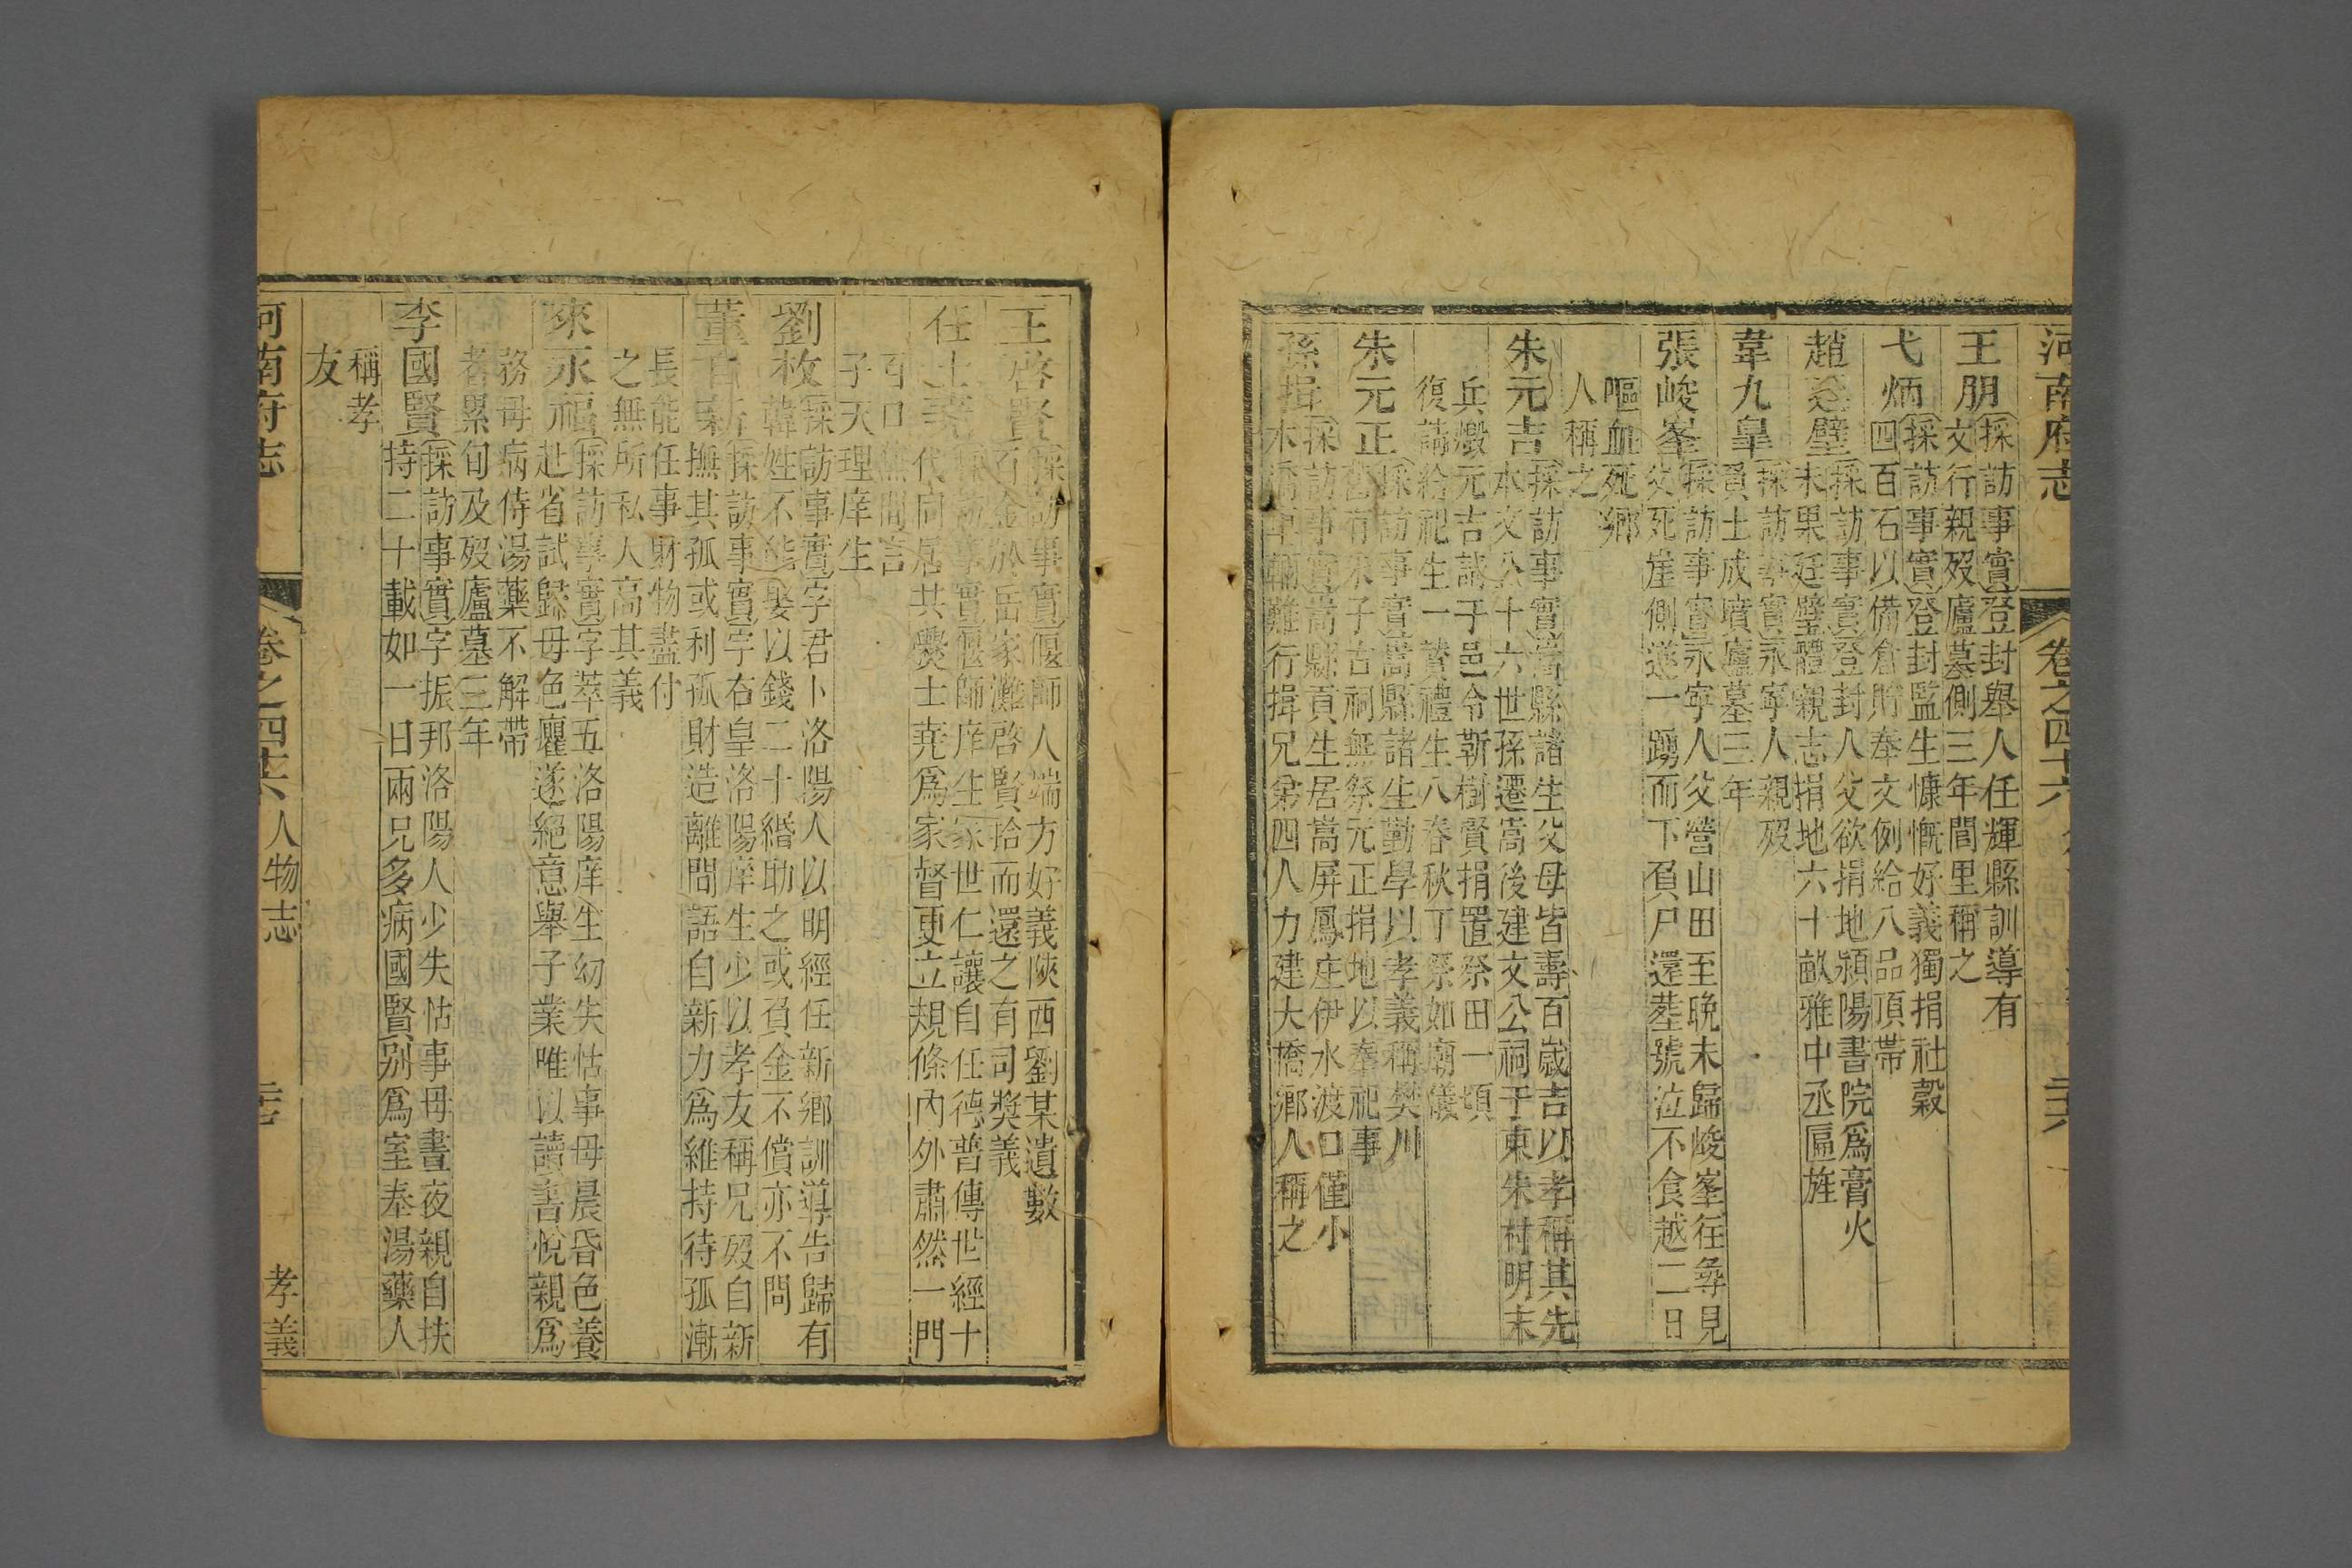 河南府志
卷之四十六
王朋
採訪事實登封舉人任輝縣訓導有
文行親歿廬墓側三年閭里稱之
弋炳
採訪事實登封監生慷慨好義獨捐社穀
四百石以備倉貯奉文例給八品頂帶
趙廷璧
採訪事實登封人父欲捐地潁陽書院為膏火
未果廷璧體親志捐地六十畝雅中丞匾旌
韋九皇
採訪事實永寧人親歿
負土成墳廬墓三年
張峻峯
採訪事實永寧人父營山田至晩未歸峻峯往尋見
父死崖側遂一踴而下負尸還塟號泣不食越二日
嘔血死鄉
人稱之
朱元吉
採訪事實嵩縣諸生父母皆壽百歲吉以孝稱其先
本文公十六世孫遷嵩後建文公祠于東朱村明末
兵燬元吉試于邑令靳樹賢捐置祭田一頃
復請給祀生一贊禮生八春秋丁祭如廟儀
朱元正
採訪事實嵩縣諸生勤學以孝義稱樊川
舊有朱子古祠無祭元正捐地以奉祀事
孫揖
採訪事實嵩縣貢生居嵩屏鳳庄伊水渡口僅小
木橋車輛難行揖兄弟四人力建大橋鄉人稱之
王啓賢
採訪事實偃師人端方好義陝西劉某遺數
百金於岳家灘啓賢拾而還之有司獎義
任士堯
採訪事實偃師庠生家世仁讓自任德普傳世經十
代同居共爨士堯為家督更立規條內外肅然一門
百口無間言
子天理庠生
劉枚
採訪事實字君卜洛陽人以明經任新鄉訓導告歸有
韓姓不能娶以錢二十緡助之或負金不償亦不問
董自新
採訪事實字右皇洛陽庠生少以孝友稱兄歿自新
撫其孤或利孤財造離間語自新力為維持待孤漸
長能任事財物盡付
之無所私人高其義
來永福
採訪事實字萃五洛陽庠生幼失怙事母晨昏色養
赴省試歸母色癯遂絕意舉子業唯以讀書悅親為
務母病侍湯藥不解帶
者累旬及歿廬墓三年
李國賢
採訪事實字振邦洛陽人少失怙事母晝夜親自扶
持二十載如一日兩兄多病國賢别為室奉湯藥人
稱孝
友
河南府志
卷之四十六
人物志
孝義